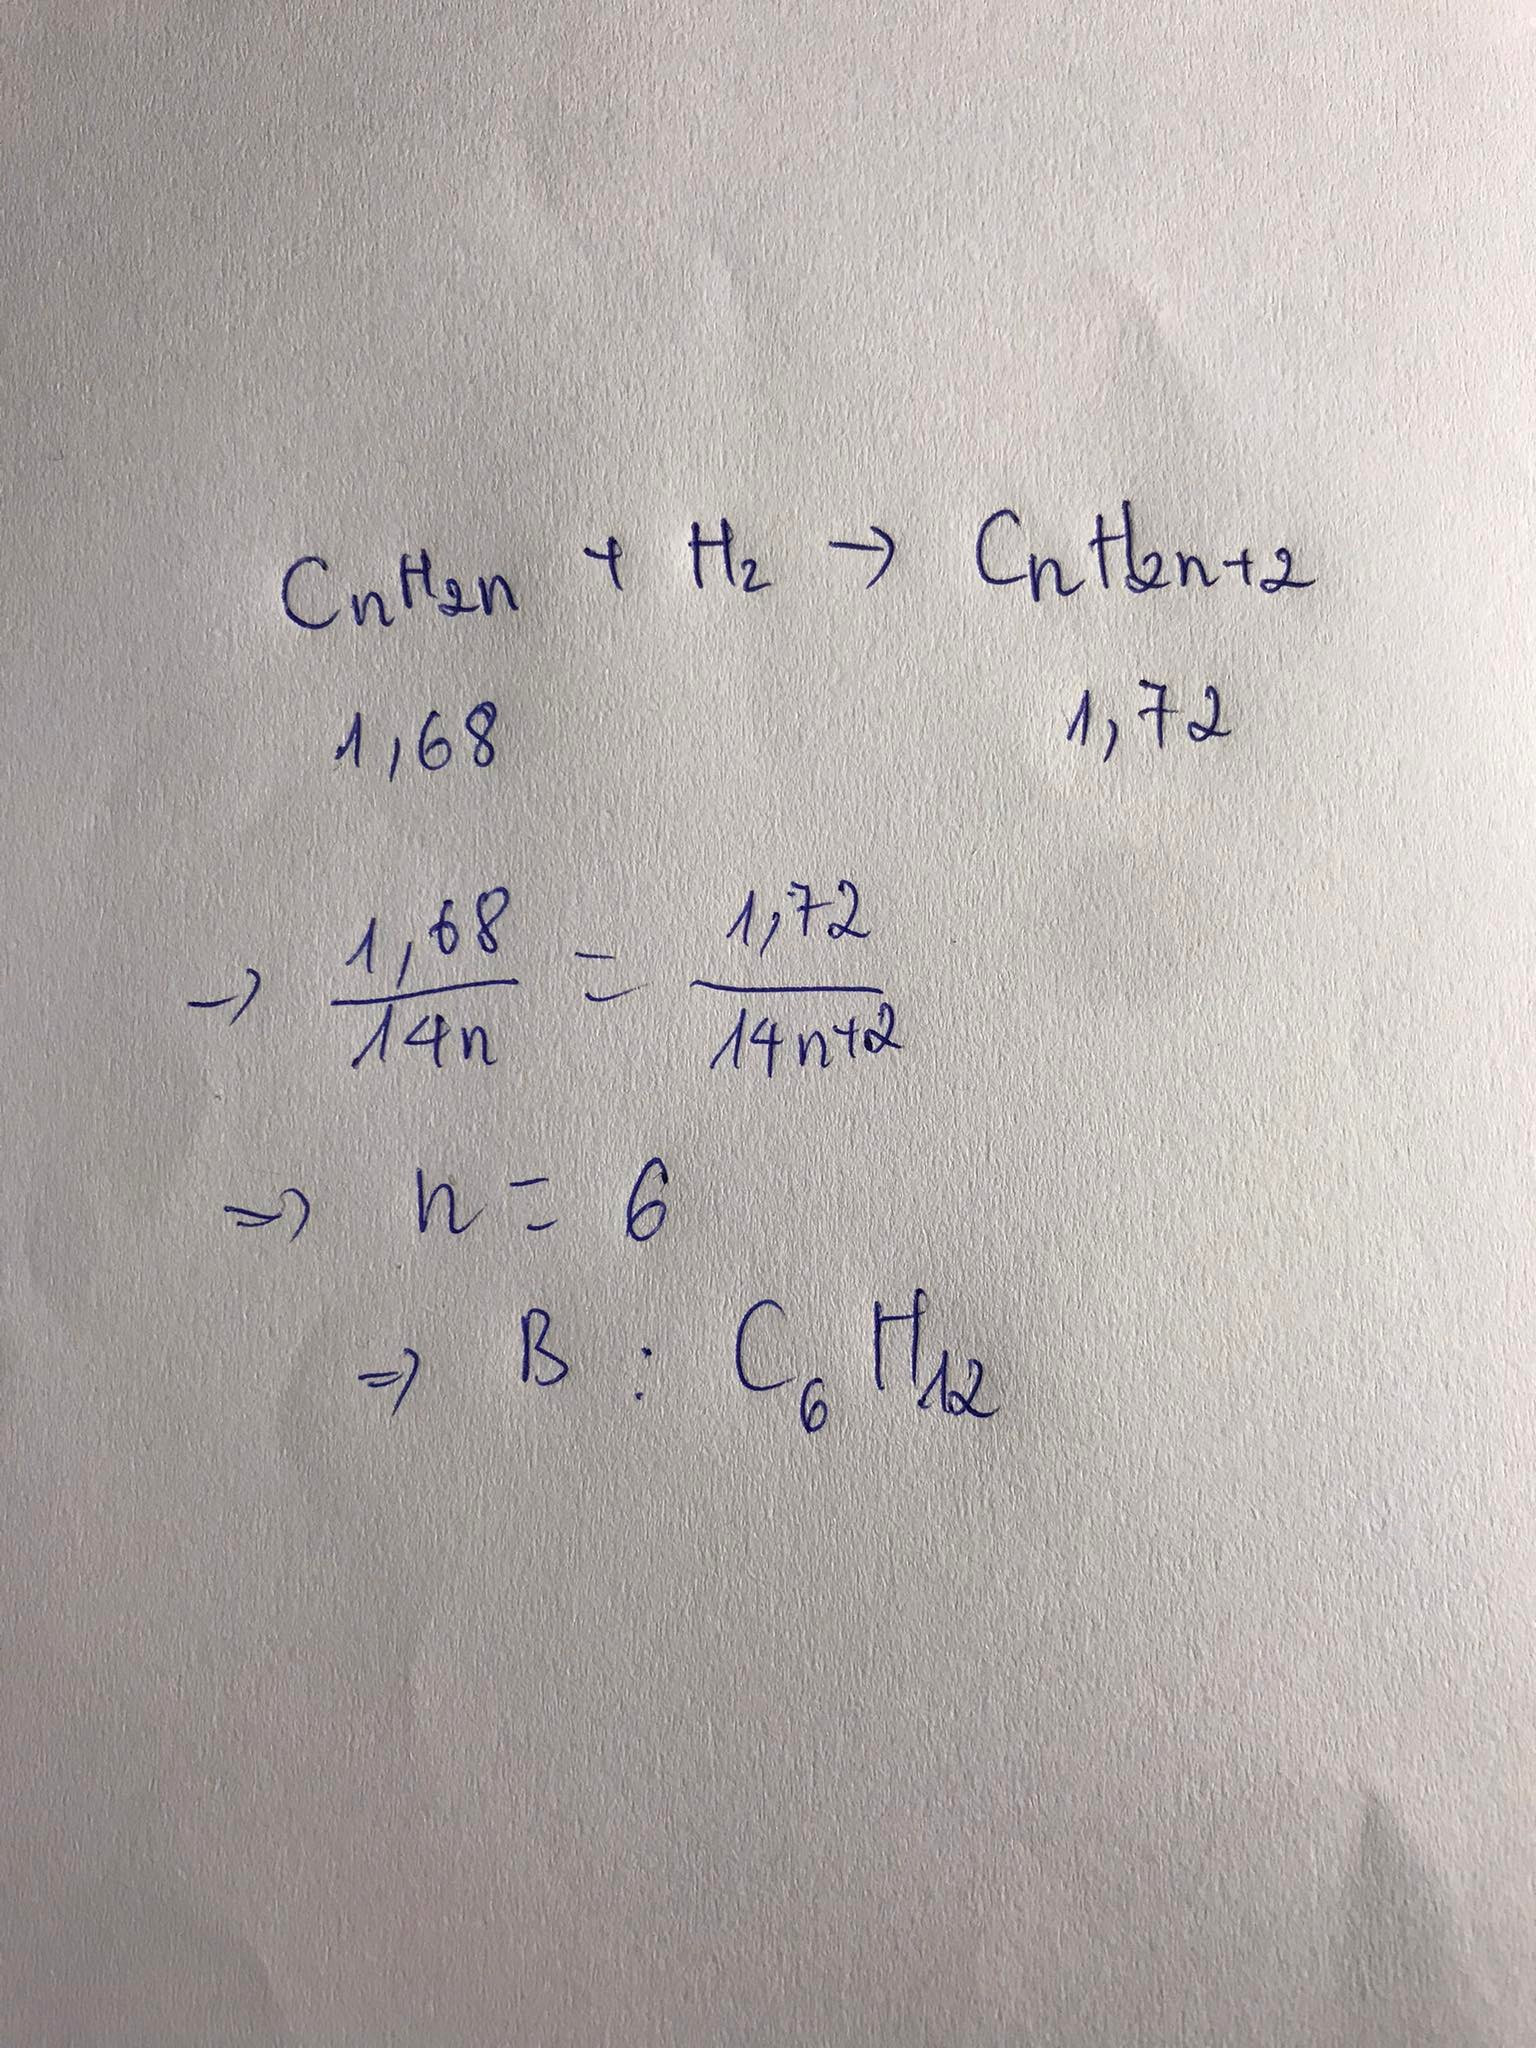 CnH2n + H2 → CnH2n+2
1,68 1,72
→ 1,68/14n = 1,72/14n+2
⇒ n = 6
⇒ B : C6H12